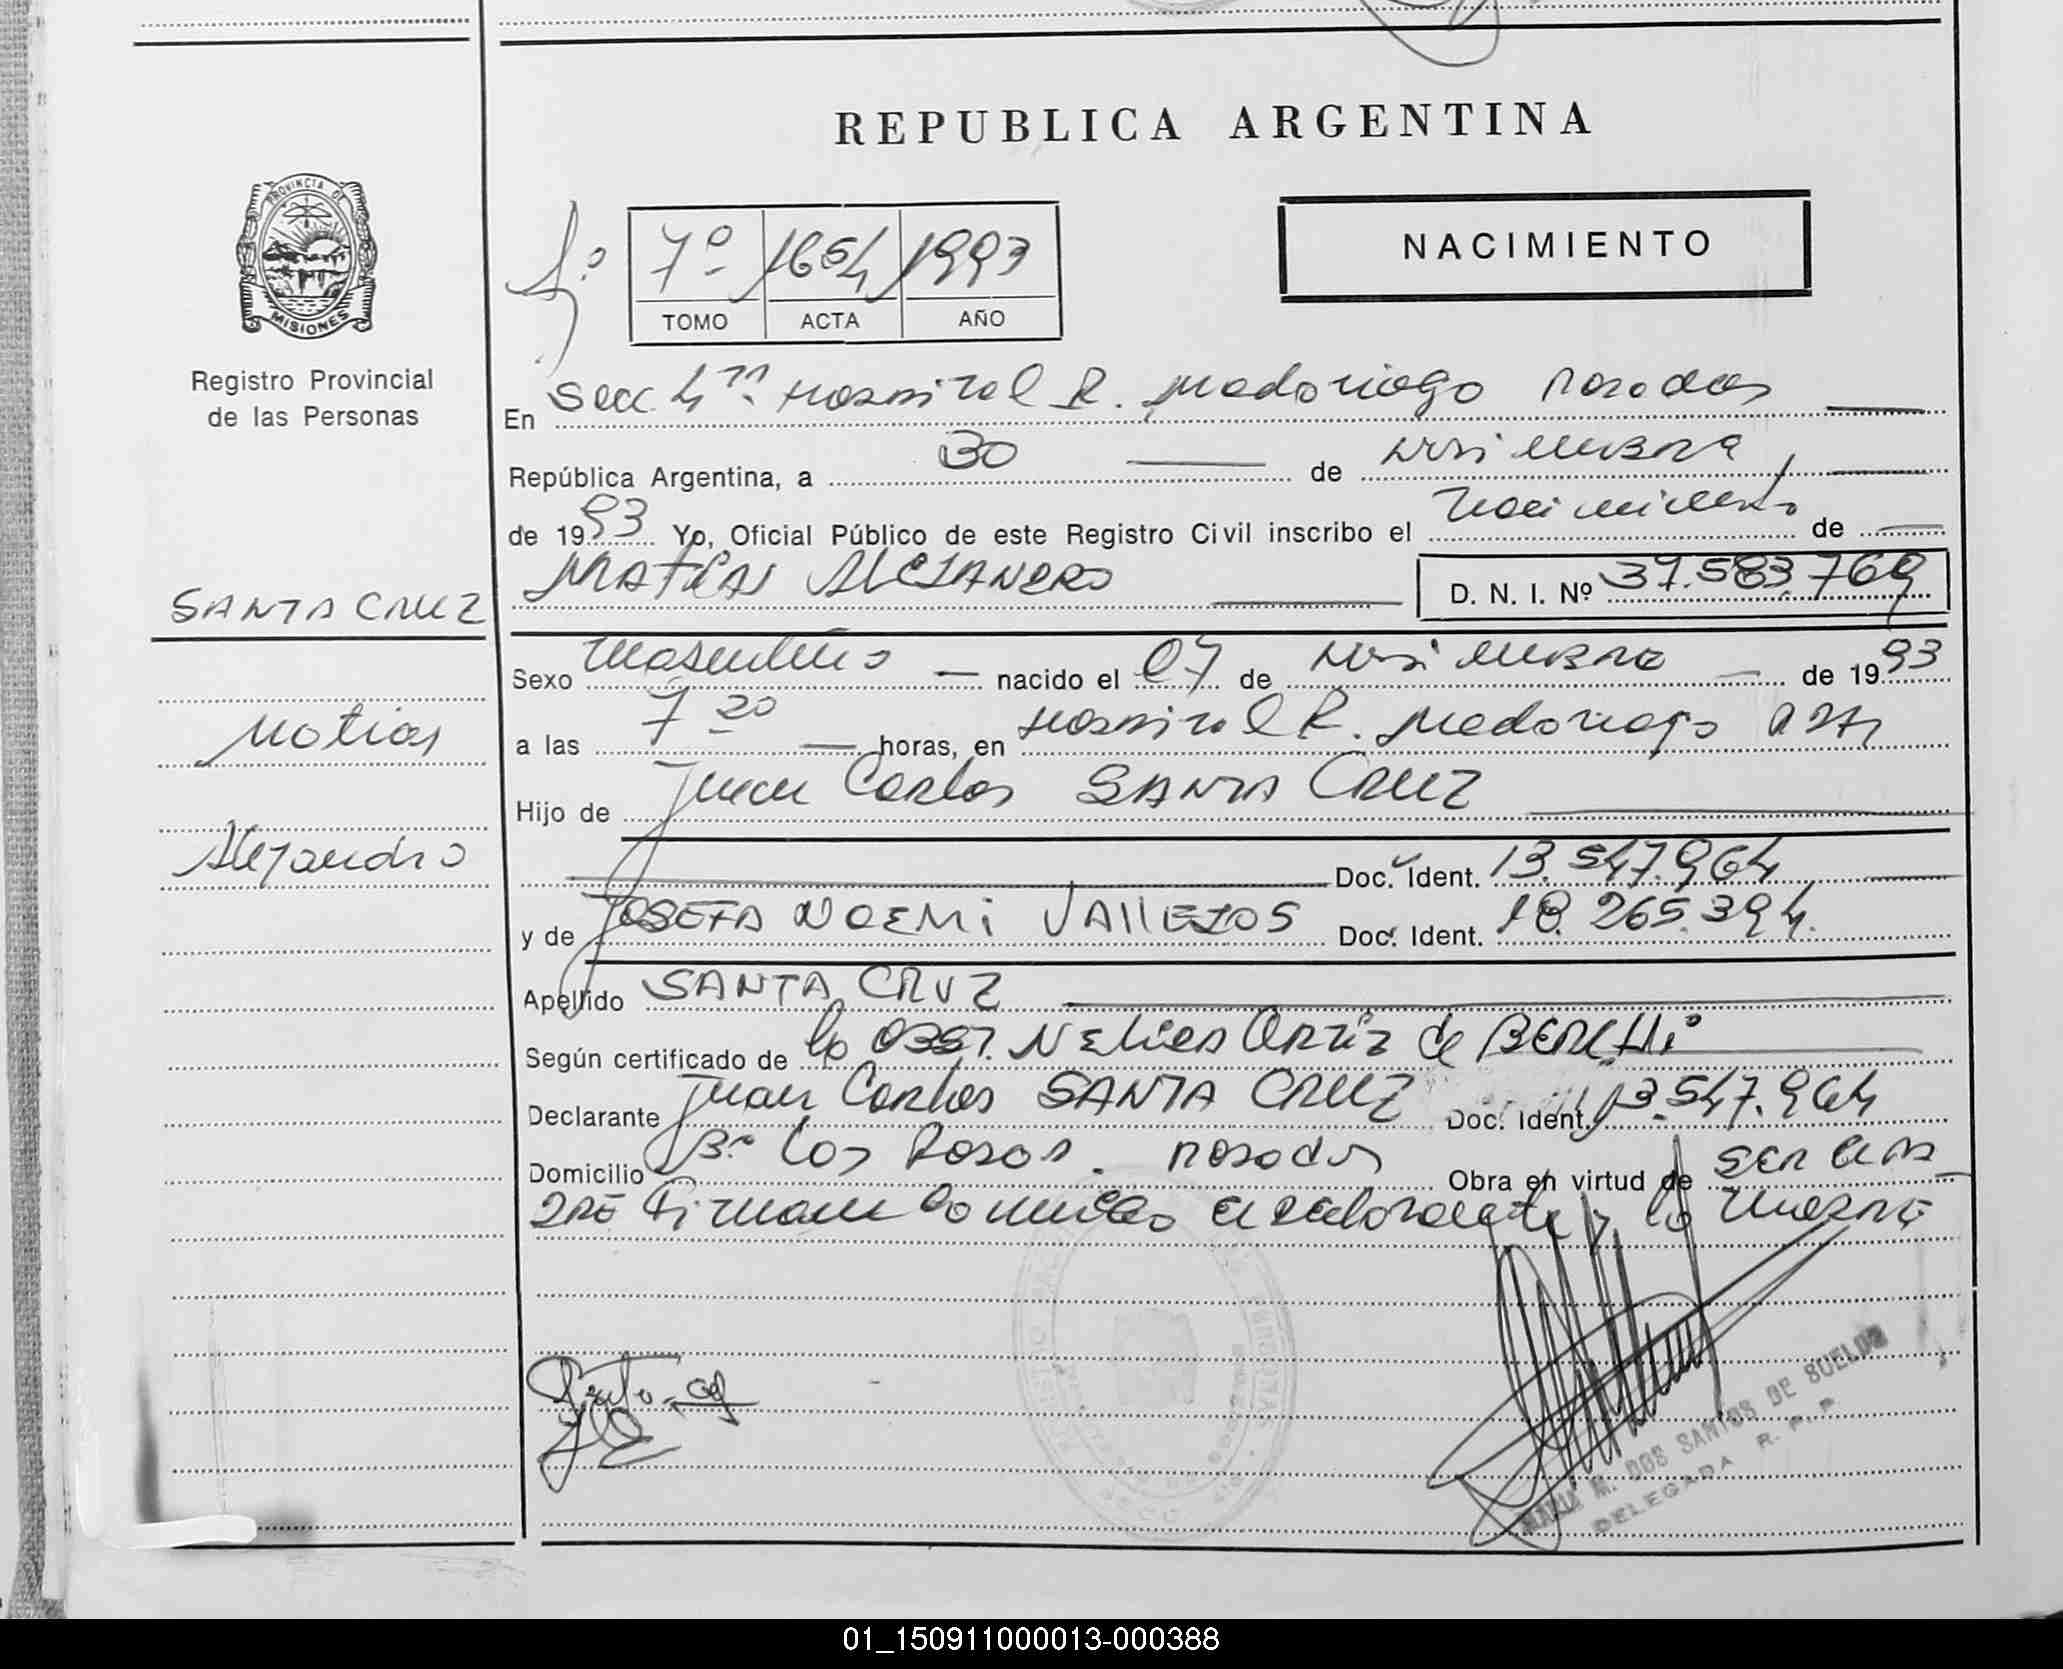 REPUBLICA ARGENTINA
PROVINCIA DE
MISIONES
Registro Provincial
de las Personas
NACIMIENTO
7º 1654 1993
TOMO ACTA AÑO
En Secc. 4ta Hospital R. Madariaga Posadas
República Argentina, a 30 de Noviembre
de 1993 Yo, Oficial Público de este Registro Civil inscribo el Nacimiento de
MATIAS ALEJANDRO D. N. I. Nº 37.583.769
SANTA CRUZ
Matias
Alejandro
Sexo Masculino nacido el 07 de Noviembre de 1993
a las 7 20 horas, en Hospital R. Madariaga
Hijo de Juan Carlos SANTA CRUZ
Doc. Ident. 13.547.964
y de JOSEFA NOEMI VALLEJOS Doc. Ident. 18.265.394.
Apellido SANTA CRUZ
Según certificado de la OBST. Nelida Ortiz de
Declarante Juan Carlos SANTA CRUZ Doc. Ident. 13.547.964
Domicilio Bº Las Rosas. Posadas Obra en virtud de ser el pa-
dre Firman conmigo el declarante y la madre
MARIA M. DOS SANTOS DE SUELDO
DELEGADA R. P. P.
01_150911000013-000388